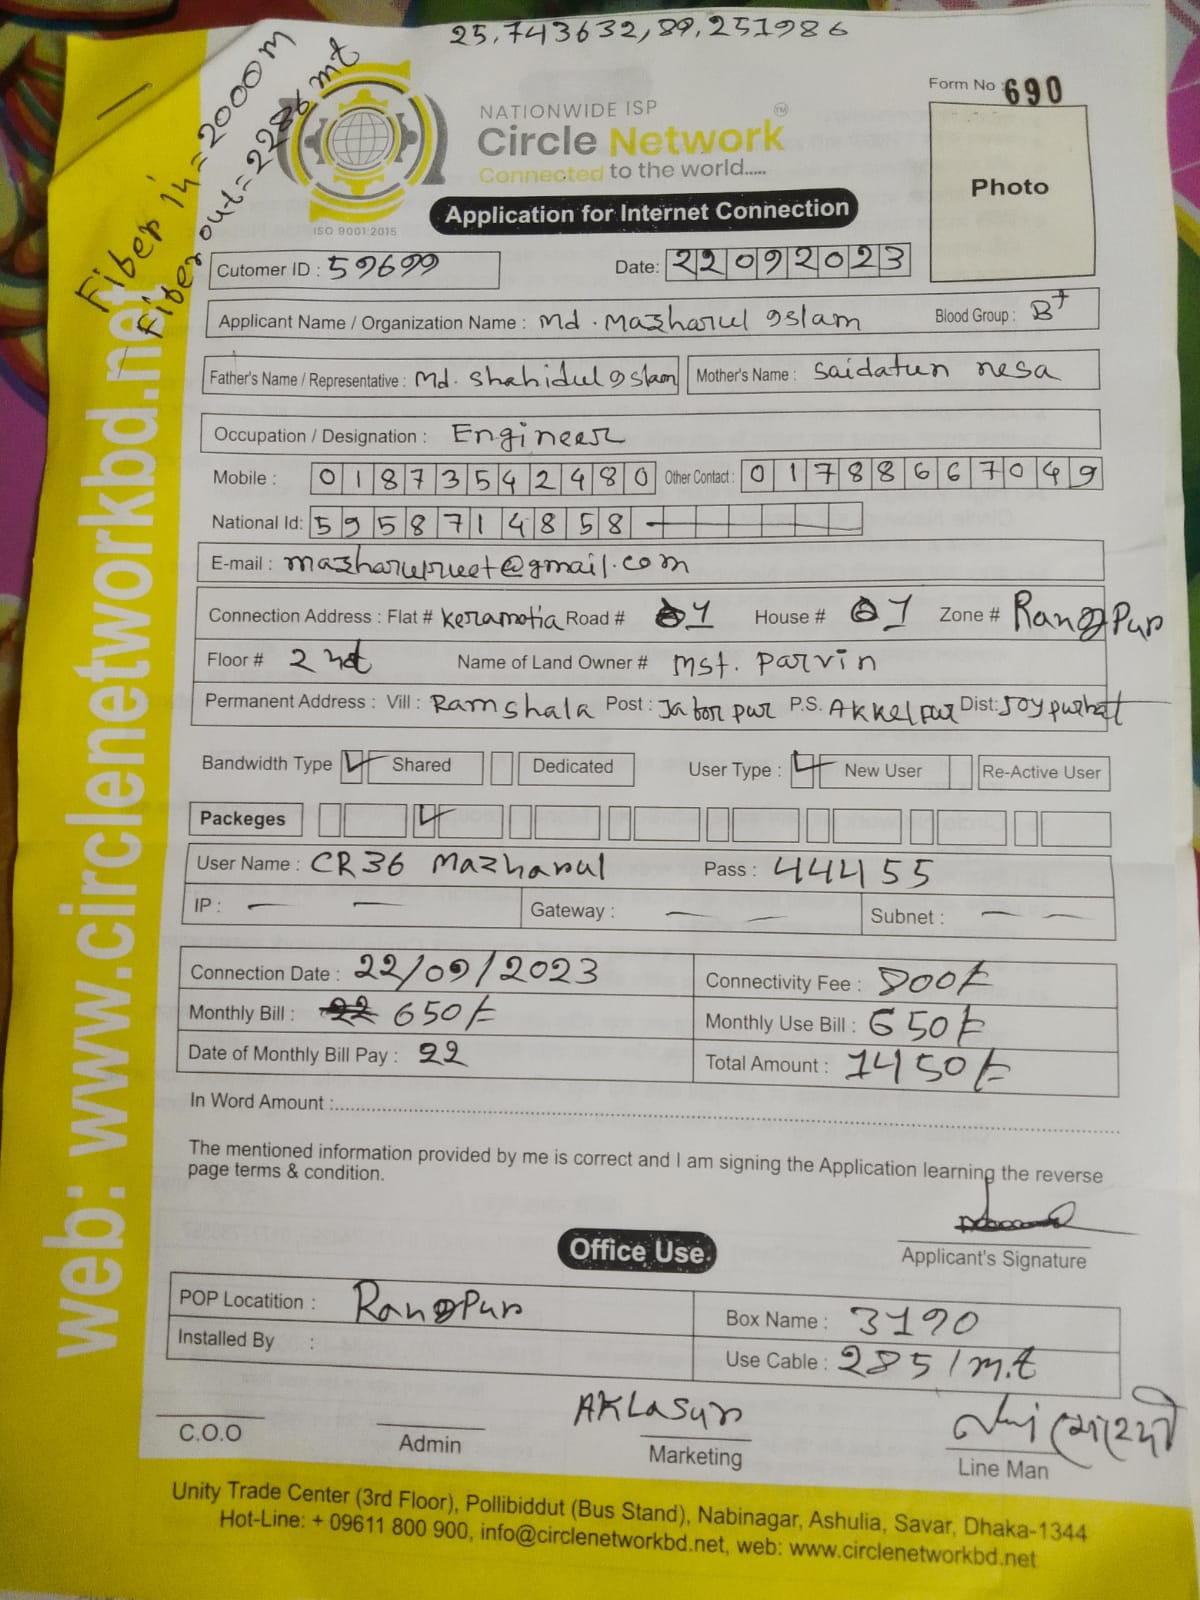 25.743632,89.251986
Fiber in = 2000m
Fiber out = 2286 mt
Form No : 690
NATIONWIDE ISP
Circle Network TM
Connected to the world.....
ISO 9001:2015
Photo
Application for Internet Connection
Cutomer ID : 59699 Date: 22092023
Applicant Name / Organization Name : Md. Mazharul Islam Blood Group : B+
Father's Name / Representative : Md. Shahidul Islam Mother's Name : Saidatun nesa
Occupation / Designation : Engineer
Mobile : 01873542480 Other Contact : 01788667049
National Id: 5958714858
E-mail : mazharulruet@gmail.com
Connection Address : Flat # Keramotia Road # 01 House # 01 Zone # Rangpur
Floor # 2nd Name of Land Owner # Mst. Parvin
Permanent Address : Vill : Ramshala Post : Jaforpur P.S. Akkelpur Dist: Joypurhat
Bandwidth Type Shared Dedicated User Type : New User Re-Active User
Packeges
User Name : CR36 Mazharul Pass : 444 55
IP : — — Gateway : — — Subnet : — —
Connection Date : 22/09/2023 Connectivity Fee : 800/=
Monthly Bill : 22 650/= Monthly Use Bill : 650/=
Date of Monthly Bill Pay : 22 Total Amount : 1450/=
In Word Amount :
The mentioned information provided by me is correct and I am signing the Application learning the reverse
page terms & condition.
Applicant's Signature
Office Use.
POP Locatition : Rangpur Box Name : 3190
Installed By : Use Cable : 285/m.t
AKLASUR
C.O.O Admin Marketing Line Man
Unity Trade Center (3rd Floor), Pollibiddut (Bus Stand), Nabinagar, Ashulia, Savar, Dhaka-1344
Hot-Line: + 09611 800 900, info@circlenetworkbd.net, web: www.circlenetworkbd.net
web: www.circlenetworkbd.net